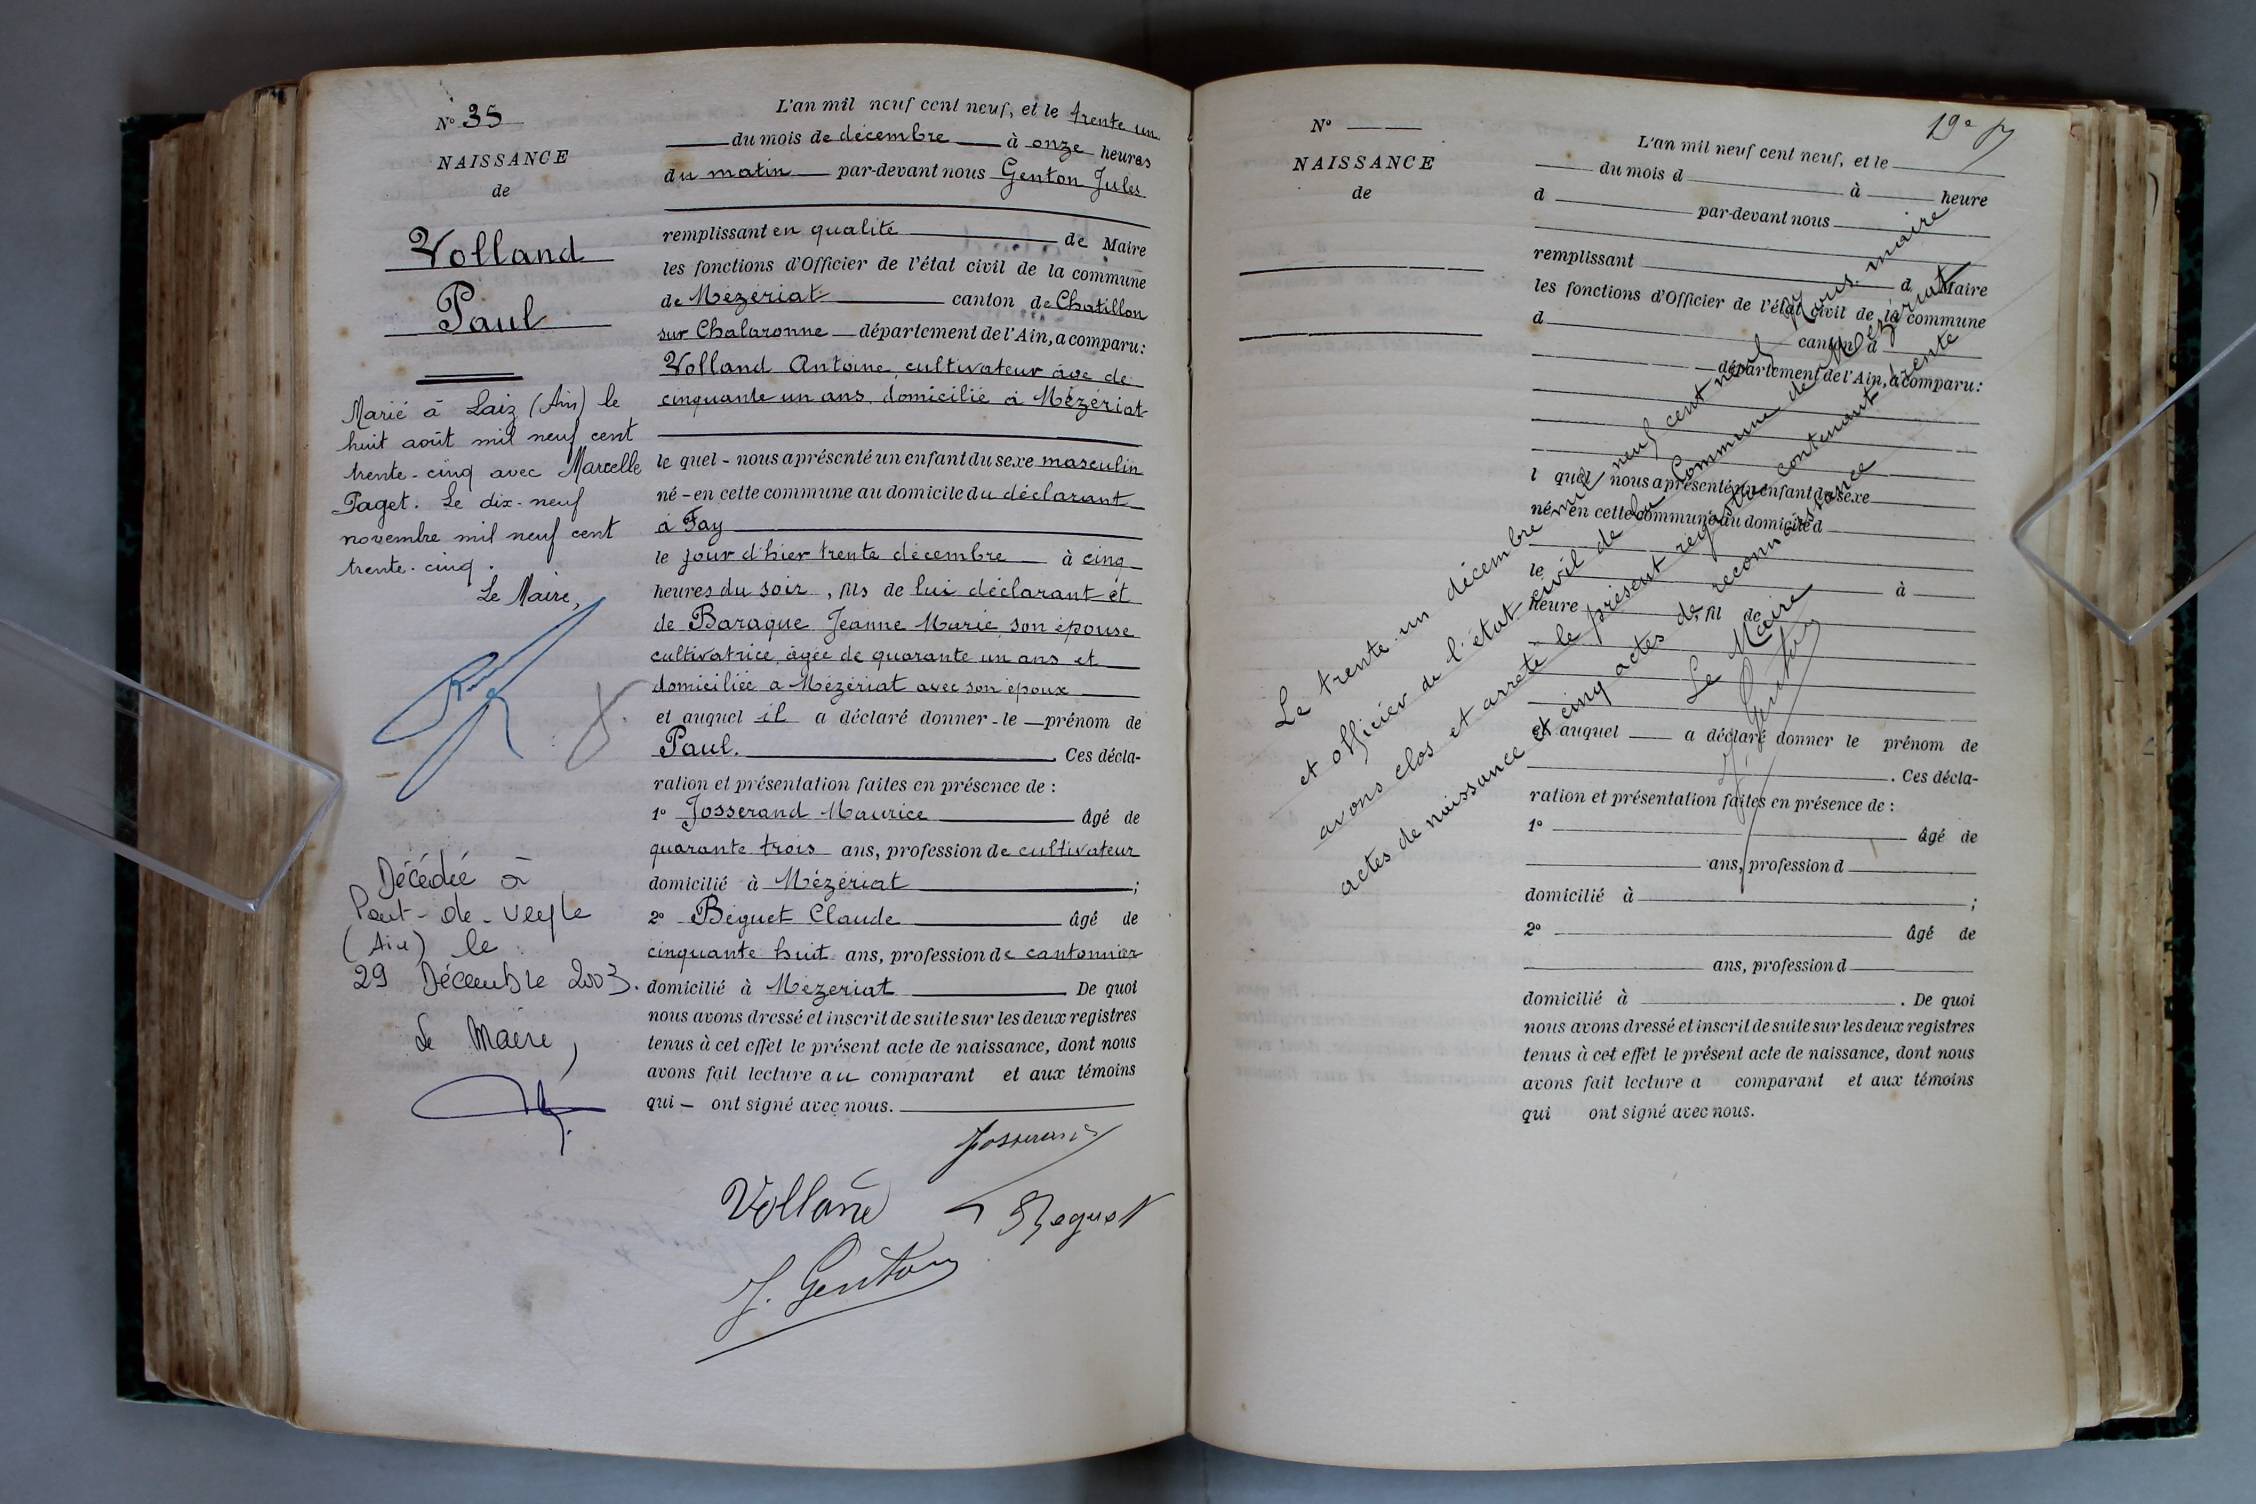 N° 35
NAISSANCE
de
Volland
Paul
Marié à Laiz (Ain) le
huit août mil neuf cent
trente-cinq avec Marcelle
Paget. Le dix-neuf
novembre mil neuf cent
trente-cinq.
Le Maire,
Décédée à
Pont-de-Veyle
(Ain) le
29 Décembre 2003.
Le Maire,
L'an mil neuf cent neuf, et le trente un
du mois de décembre à onze heures
du matin par-devant nous Genton Jules
remplissant en qualité de Maire
les fonctions d'Officier de l'état civil de la commune
de Mézériat canton de Chatillon
sur Chalaronne département de l'Ain, a comparu:
Volland Antoine, cultivateur âge de
cinquante un ans, domicilié à Mézériat
le quel - nous a présenté un enfant du sexe masculin
né - en cette commune au domicile du déclarant
à Fay
le jour d'hier trente décembre à cinq
heures du soir, fils de lui déclarant et
de Baraque Jeanne Marie, son épouse
cultivatrice, âgée de quarante un ans et
domiciliée a Mézériat avec son époux
et auquel il a déclaré donner - le prénom de
Paul. Ces décla-
ration et présentation faites en présence de :
1° Josserand Maurice âgé de
quarante trois ans, profession de cultivateur
domicilié à Mézériat ;
2° Béguet Claude âgé de
cinquante huit ans, profession de cantonnier
domicilié à Mézeriat De quoi
nous avons dressé et inscrit de suite sur les deux registres
tenus à cet effet le présent acte de naissance, dont nous
avons fait lecture au comparant et aux témoins
qui - ont signé avec nous.
Josserand
Volland
Beguet
J. Genton
N°
NAISSANCE
de
19e
L'an mil neuf cent neuf, et le
du mois d à heure
d par-devant nous
remplissant d Maire
les fonctions d'Officier de l'état civil de la commune
d canton d
département de l'Ain, a comparu:
l quel nous a présenté un enfant du sexe
né en cette commune au domicile d
le à
heure , fil de
et auquel a déclaré donner le prénom de
. Ces décla-
ration et présentation faites en présence de :
1° âgé de
ans, profession d
domicilié à ;
2° âgé de
ans, profession d
domicilié à . De quoi
nous avons dressé et inscrit de suite sur les deux registres
tenus à cet effet le présent acte de naissance, dont nous
avons fait lecture a comparant et aux témoins
qui ont signé avec nous.
Le trente un décembre mil neuf cent neuf Nous maire
et officier de l'état civil de la Commune de Mézériat
avons clos et arrêté le présent registre contenant trente
actes de naissance et cinq actes de reconnaissance
Le Maire
J. Genton